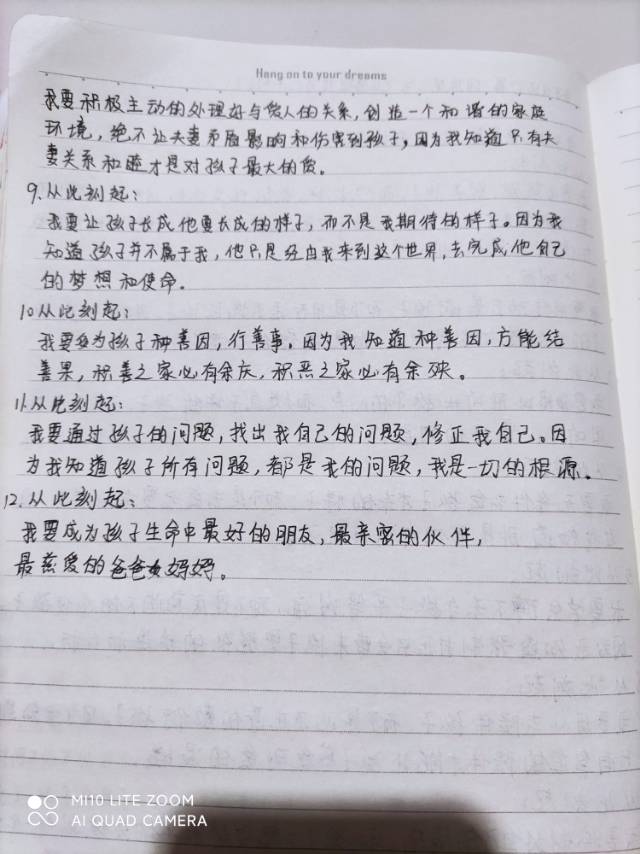 Hang on to your dreams
我要积极主动的处理好与爱人的关系,创造一个和谐的家庭
环境,绝不让夫妻矛盾影响和伤害到孩子,因为我知道只有夫
妻关系和睦才是对孩子最大的爱。
9.从此刻起:
我要让孩子长成他要长成的样子,而不是我期待的样子。因为我
知道孩子并不属于我,他只是经由我来到这个世界,去完成他自己
的梦想和使命。
10从此刻起:
我要多为孩子种善因,行善事,因为我知道种善因,方能结
善果,积善之家必有余庆,积恶之家必有余殃。
11.从此刻起:
我要通过孩子的问题,找出我自己的问题,修正我自己。因
为我知道孩子所有问题,都是我的问题,我是一切的根源。
12.从此刻起:
我要成为孩子生命中最好的朋友,最亲密的伙伴,
最慈爱的爸爸妈妈。
MI10 LITE ZOOM
AI QUAD CAMERA